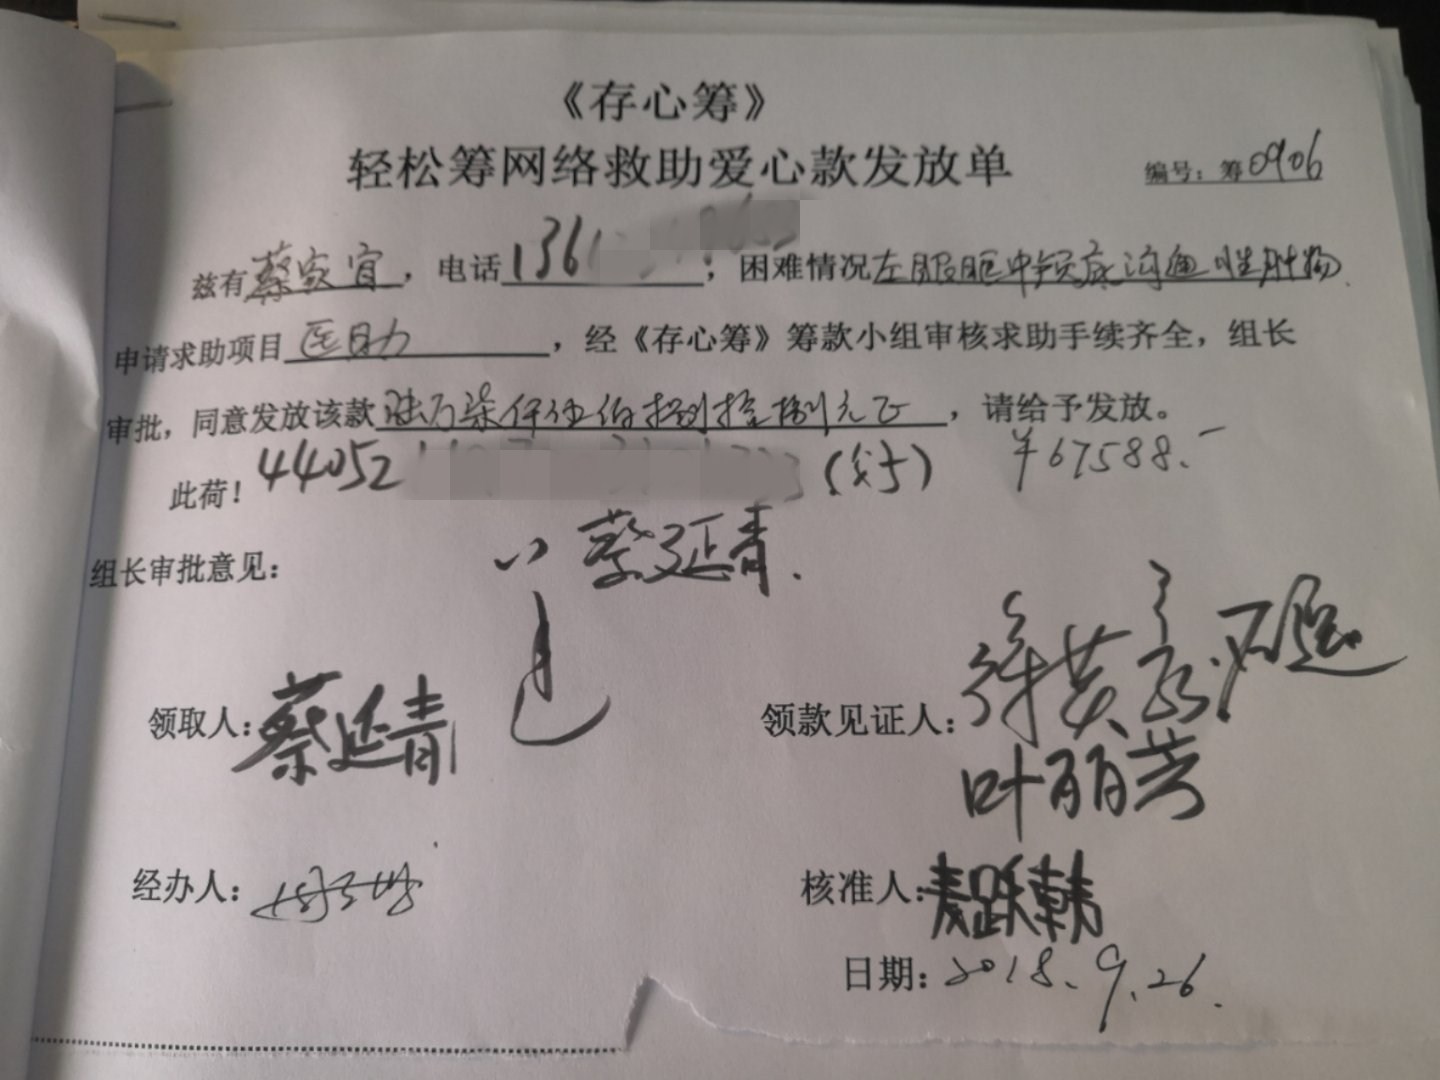 《存心筹》
轻松筹网络救助爱心款发放单
编号：筹0906
兹有蔡家宜，电话136，困难情况左
申请求助项目医助，经《存心筹》筹款小组审核求助手续齐全，组长
审批，同意发放该款陆万柒仟伍佰捌拾捌元正，请给予发放。
¥67588.-
此荷！44052
蔡延青.
组长审批意见：
领取人：蔡延青
领款见证人：
叶丽芳
经办人：
核准人：麦跃韩
日期：2018.9.26.